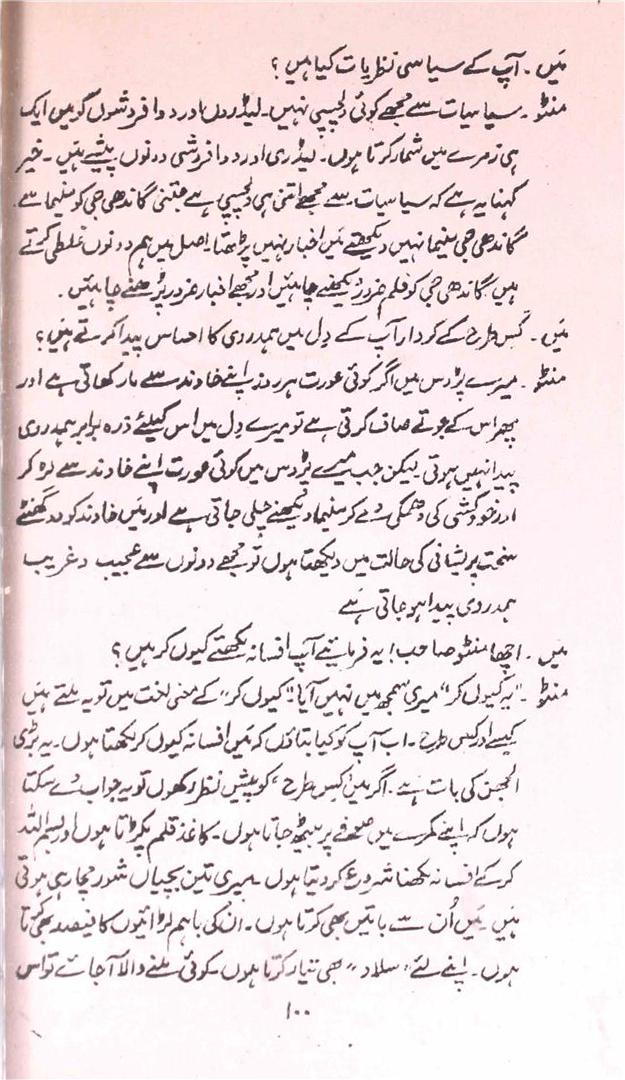 میں ۔ آپ کے سیاسی نظریات کیا ہیں ؟
منٹو ۔ سیاسیات سے مجھے کوئی دلچسپی نہیں ۔ لیڈروں اور دوا فروشوں کو میں ایک
ہی زمرے میں شمار کرتا ہوں ۔ لیڈری اور دوا فروشی دونوں پیشے ہیں ۔ خیر
کہنا یہ ہے کہ سیاسیات سے مجھے اتنی ہی دلچسپی ہے جتنی گاندھی جی کو سنیما سے
گاندھی جی سنیما نہیں دیکھتے میں اخبار نہیں پڑھتا ۔ اصل میں ہم دونوں غلطی کرتے
ہیں گاندھی جی کو فلم ضرور دیکھنے چاہئیں اور مجھے اخبار ضرور پڑھنے چاہئیں ۔
میں ۔ کس طرح کے کردار آپ کے دل میں ہمدردی کا احساس پیدا کرتے ہیں ؟
منٹو ۔ میرے پڑوس میں اگر کوئی عورت ہر روز اپنے خاوند سے مار کھاتی ہے اور
پھر اس کے جوتے صاف کرتی ہے تو میرے دل میں اس کیلئے ذرہ برابر ہمدردی
پیدا نہیں ہوتی ۔ لیکن جب میرے پڑوس میں کوئی عورت اپنے خاوند سے لڑ کر
اور خودکشی کی دھمکی دے کر سنیما دیکھنے چلی جاتی ہے اور میں خاوند کو دو گھنٹے
سخت پریشانی کی حالت میں دیکھتا ہوں تو مجھے دونوں سے عجیب و غریب
ہمدردی پیدا ہو جاتی ہے
میں ۔ اچھا منٹو صاحب! یہ فرمائیے آپ افسانہ لکھتے کیوں کر ہیں ؟
منٹو ۔ "یہ کیوں کر" میری سمجھ میں نہیں آیا ۔ "کیوں کر" کے معنی لغت میں تو یہ ملتے ہیں
کیسے اور کس طرح ۔ اب آپ کو کیا بتاؤں کہ میں افسانہ کیوں کر لکھتا ہوں ۔ یہ بڑی
الجھن کی بات ہے ۔ اگر میں "کس طرح" کو پیش نظر رکھوں تو یہ جواب دے سکتا
ہوں کہ اپنے کمرے میں صوفے پر بیٹھ جاتا ہوں ۔ کاغذ قلم پکڑتا ہوں اور بسم اللہ
کر کے افسانہ لکھنا شروع کر دیتا ہوں ۔ میری تین بچیاں شور مچا رہی ہوتی
ہیں ۔ میں اُن سے باتیں بھی کرتا ہوں ۔ ان کی باہم لڑائیوں کا فیصلہ بھی کرتا
ہوں ۔ اپنے لئے "سلاد" بھی تیار کرتا ہوں ۔ کوئی ملنے والا آ جائے تو اس
۱۰۰